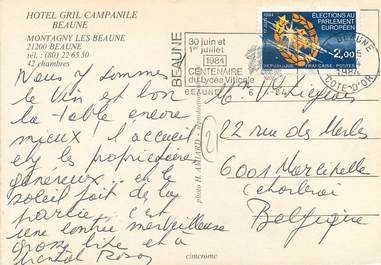 HOTEL GRIL CAMPANILE
BEAUNE
MONTAGNY LES BEAUNE
21200 BEAUNE
tél. : (80) 22 65 50
42 chambres
Nous y sommes
le vin est bon
la table encore
mieux, l'accueil
et les propriétaires
généreux, et le
soleil fait de la
partie, c'est
une contrée merveilleuse
grosse bise et à
photo H. AMIARD
cimcrome
BEAUNE
30 juin et
1er juillet
1984
CENTENAIRE
du Lycée Viticole
BEAUNE
1984 ÉLECTIONS AU
PARLEMENT
EUROPÉEN
2,00
RÉPUBLIQUE FRANÇAISE POSTES
CÔTE D'OR
22 rue des Merles
6001 Marcinelle
Charleroi
Belgique